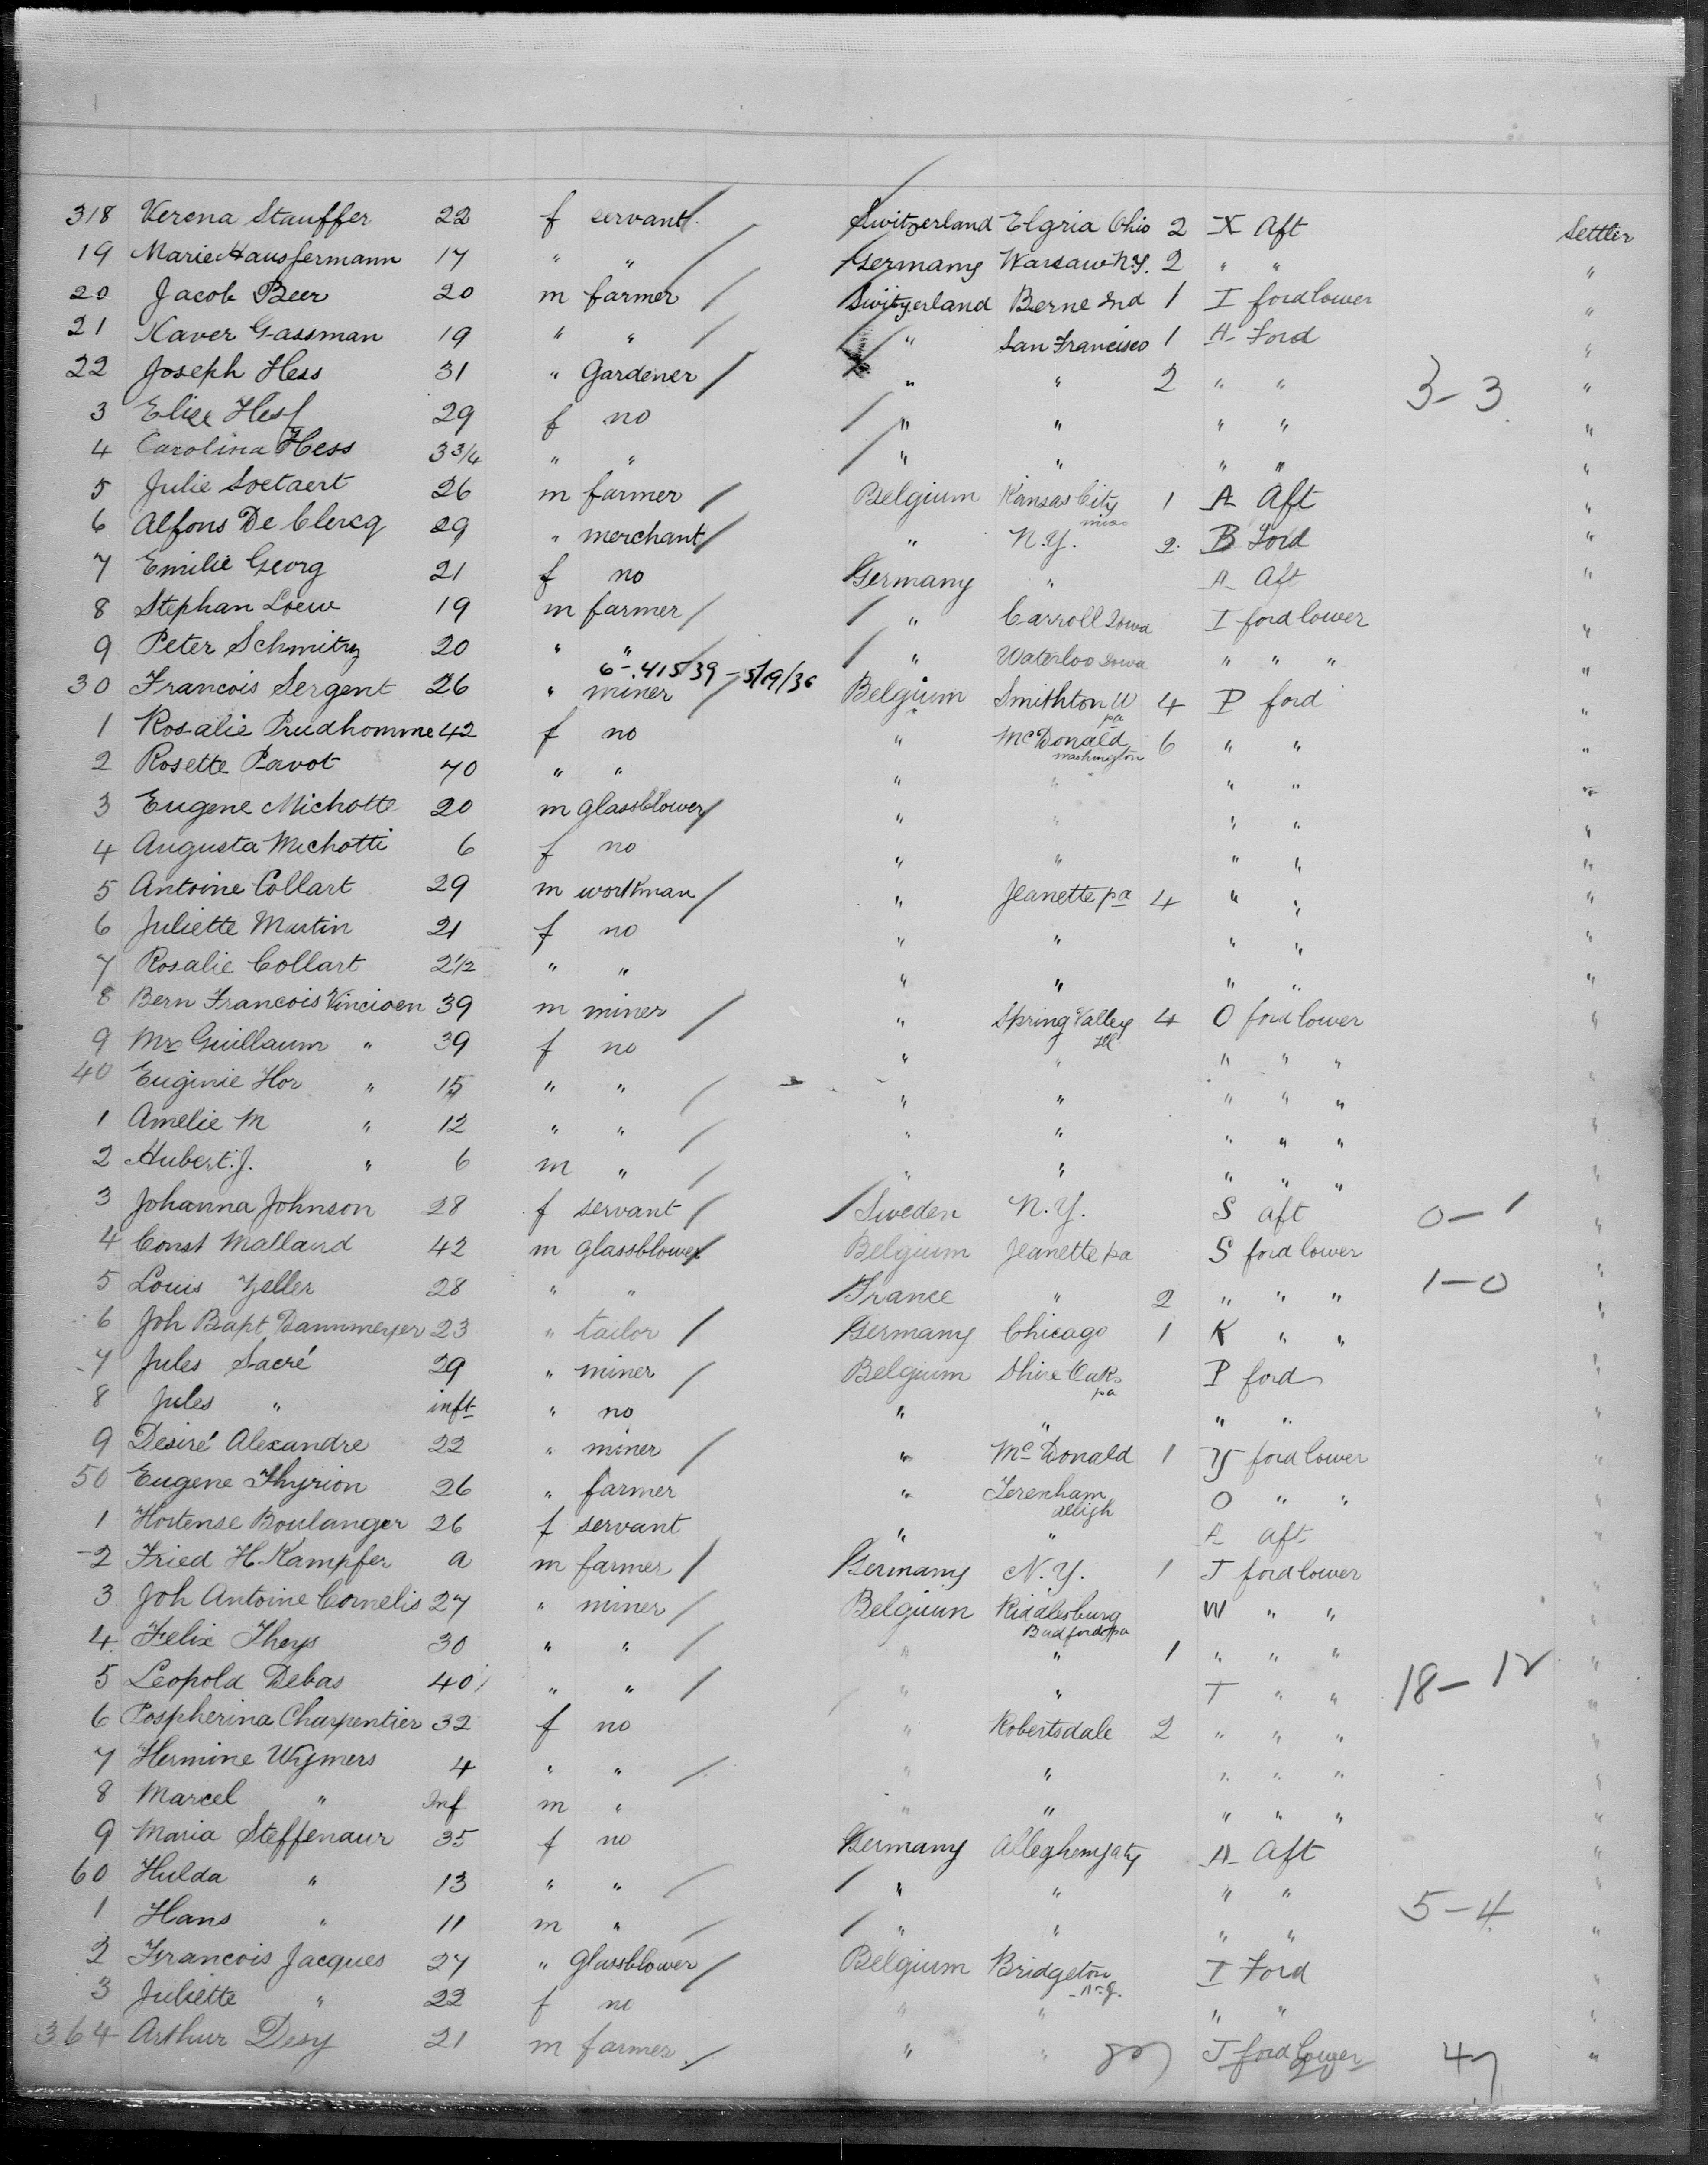 318 Verena Stauffer 22 f servant Switzerland Elgria Ohio 2 X Aft Settler
19 Marie Hausfermann 17 " " Germany Warsaw N.Y. 2 " " "
20 Jacob Beer 20 m farmer Switzerland Berne Ind 1 I ford lower "
21 Xaver Gassman 19 " " " San Francisco 1 A Ford "
22 Joseph Hess 31 " Gardener " " 2 " " 3-3 "
3 Elise Hess 29 f no " " " " "
4 Carolina Hess 3 3/4 " " " " " " "
5 Julie Soetaert 26 m farmer Belgium Kansas City 1 A Aft "
6 Alfons De Clercq 29 " merchant " N.Y. 2 B Ford "
7 Emilie Georg 21 f no Germany " A Aft "
8 Stephan Loew 19 m farmer " Carroll Iowa I ford lower "
9 Peter Schmitz 20 " " " Waterloo Iowa " " " "
6-41539-5/19/36
30 Francois Sergent 26 " miner Belgium Smithton W pa 4 P ford "
1 Rosalie Prudhomme 42 f no " McDonald washington 6 " " "
2 Rosette Pavot 70 " " " " " " "
3 Eugene Michotte 20 m glassblower " " " " "
4 Augusta Michotti 6 f no " " " " "
5 Antoine Collart 29 m workman " Jeanette pa 4 " " "
6 Juliette Martin 21 f no " " " " "
7 Rosalie Collart 2 1/2 " " " " " " "
8 Bern Francois Vincioen 39 m miner " Spring Valley Ill 4 O ford lower "
9 Mrs Guillaum " 39 f no " " " " " "
40 Euginie Hor " 15 " " " " " " " "
1 Amelie M " 12 " " " " " " " "
2 Hubert. J. " 6 m " " " " " " "
3 Johanna Johnson 28 f servant Sweden N.Y. S aft 0-1 "
4 Const Malland 42 m glassblower Belgium Jeanette pa S ford lower
5 Louis Zeller 28 " " France " 2 " " " 1-0 "
6 Joh Bapt Dannmeyer 23 " tailor Germany Chicago 1 K " " "
7 Jules Sacré 29 " miner Belgium Shire Oaks pa P ford "
8 Jules " inft " no " " " " "
9 Desiré Alexandre 22 " miner " McDonald 1 Y ford lower "
50 Eugene Thyrion 26 " farmer " O " " "
1 Hortense Boulanger 26 f servant " " A aft "
2 Fried H. Kampfer a m farmer Germany N.Y. 1 J ford lower "
3 Joh Antoine Cornelis 27 " miner Belgium Riddlesburg Bedford pa W " " "
4 Felix Theys 30 " " " " 1 " " " "
5 Leopold Debas 40 " " " " T " " 18-12 "
6 Pospherina Charpentier 32 f no " Robertsdale 2 " " " "
7 Hermine Wymers 4 " " " " " " " "
8 Marcel " Inf m " " " " " " "
9 Maria Steffenaur 35 f no Germany Allegheny City A Aft "
60 Hulda " 13 " " " " " " "
1 Hans " 11 m " " " " " 5-4 "
2 Francois Jacques 27 " glassblower Belgium Bridgeton N.J. I Ford "
3 Juliette " 22 f no " " " " "
364 Arthur Desy 21 m farmer " " J ford lower 47 "